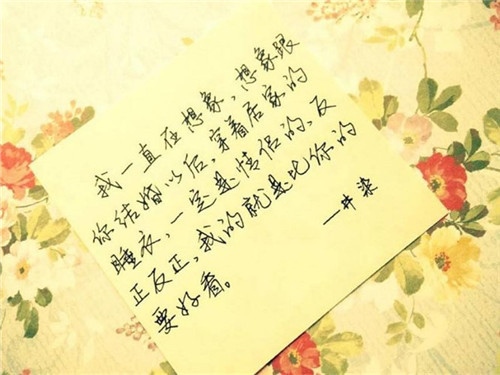 我一直在想象，想象跟
你结婚以后，穿着居家的
睡衣，一定是情侣的，反
正反正，我的就是比你的
要好看。
一井染